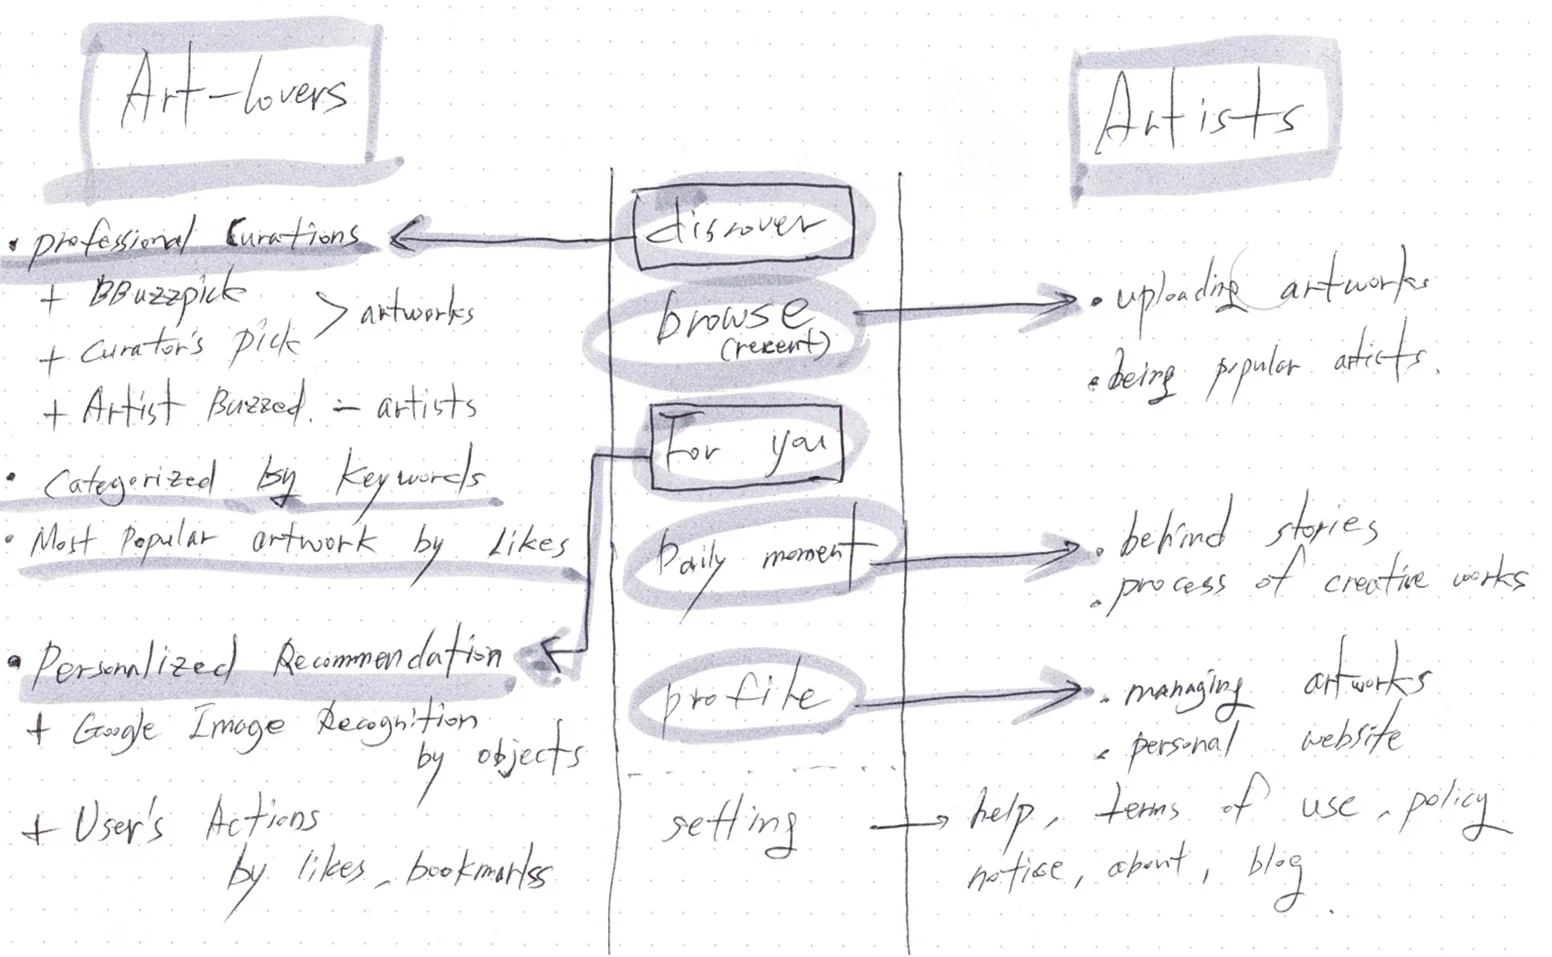 Art-lovers
• professional Curations
+ BBuzzpick
+ Curator's pick
> artworks
+ Artist Buzzed. - artists
• Categorized by keywords
• Most Popular artwork by likes
• Personalized Recommendation
+ Google Image Recognition
by objects
+ User's Actions
by likes, bookmarks
discover
browse
(recent)
For you
Daily moment
profile
setting
Artists
• uploading artworks
• being popular artists.
• behind stories
• process of creative works
• managing artworks
• personal website
help, terms of use, policy
notice, about, blog.